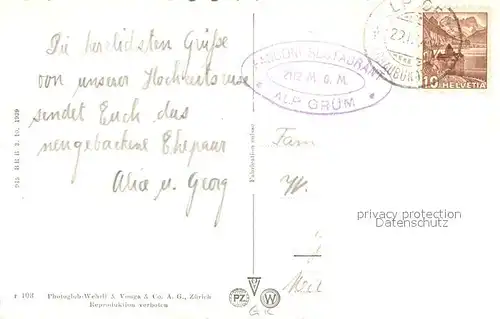 Die herzlichsten Grüße
von unserer Hochzeitsreise
sendet Euch das
neugebackene Ehepaar
Alice u. Georg
BAHNHOFRESTAURANT
2112 M. ü. M.
* ALP GRÜM *
10 HELVETIA
Fam
W.
privacy protection
watermark
Photoglob-Wehrli & Vouga & Co. A. G., Zürich
Reproduktion verboten
PZ
W